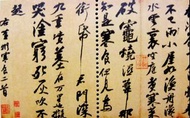 不已雨小屋如漁舟
濛濛水雲裏空庖煮寒菜
破竈燒濕葦那
知是寒食但見烏
銜帋君門深
九重墳墓在萬里也擬
哭塗窮死灰吹不
起
右黃州寒食二首